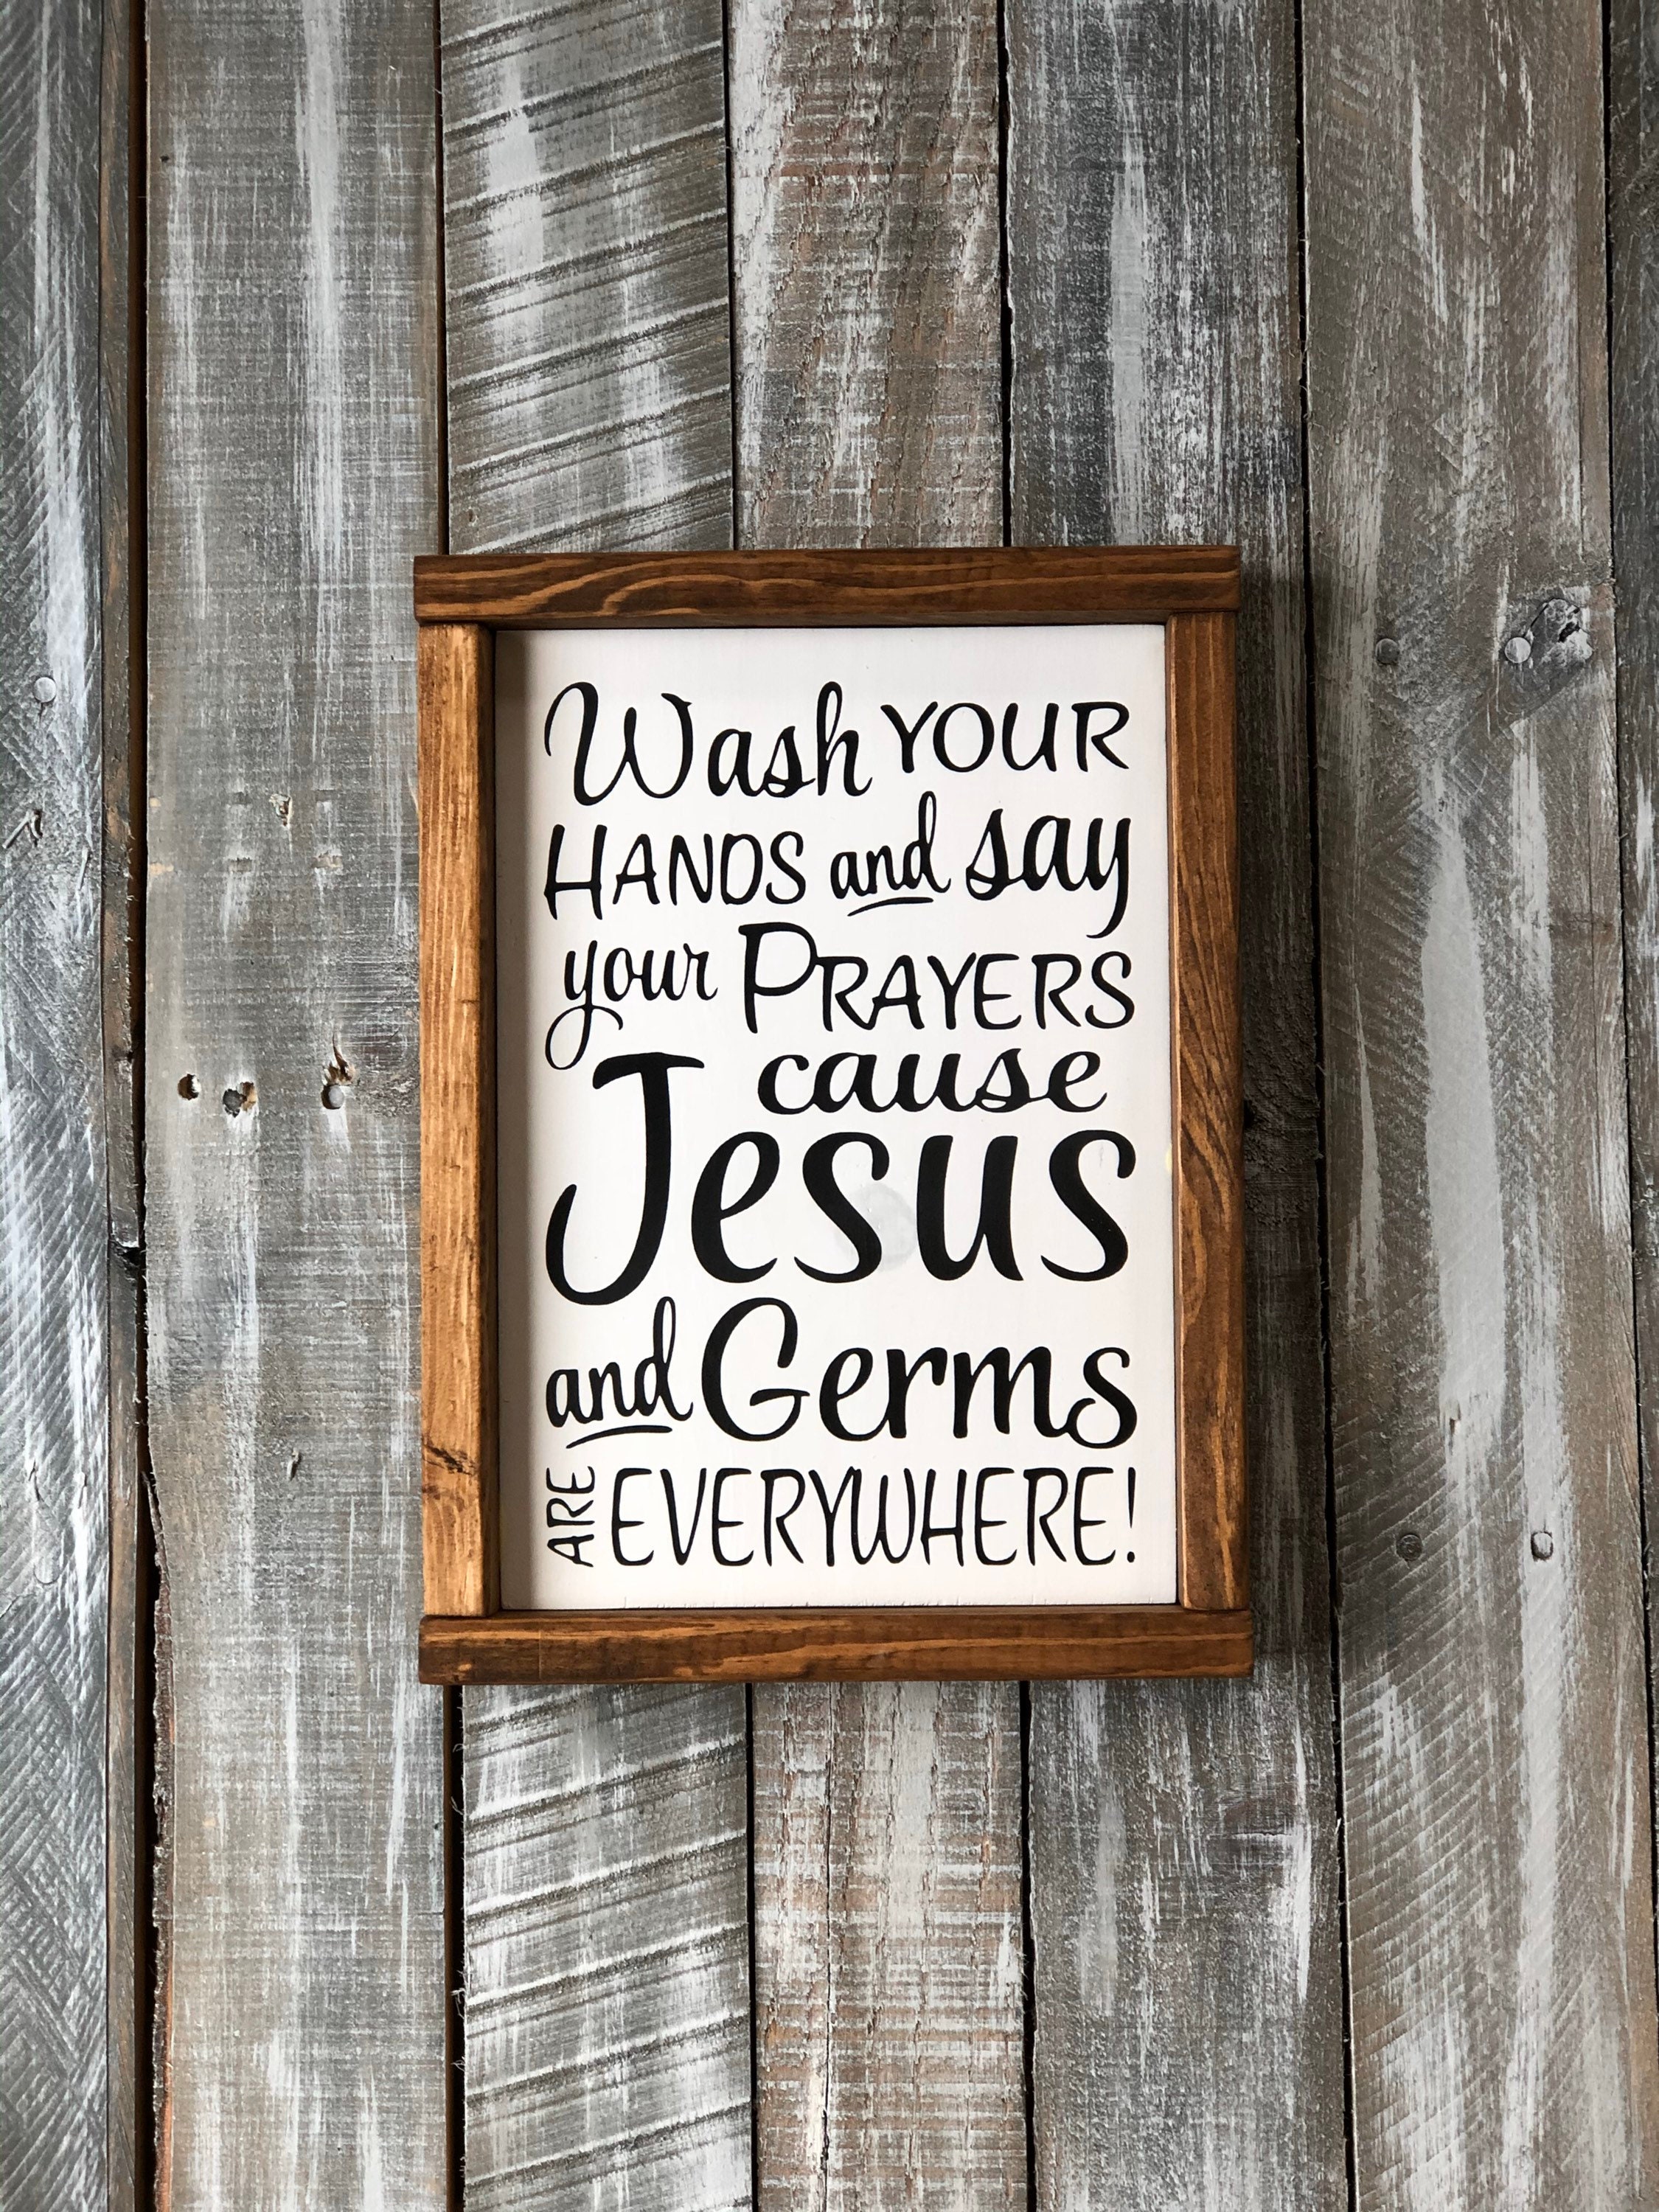 Wash YOUR
HANDS and say
your PRAYERS
cause
Jesus
and Germs
ARE EVERYWHERE!